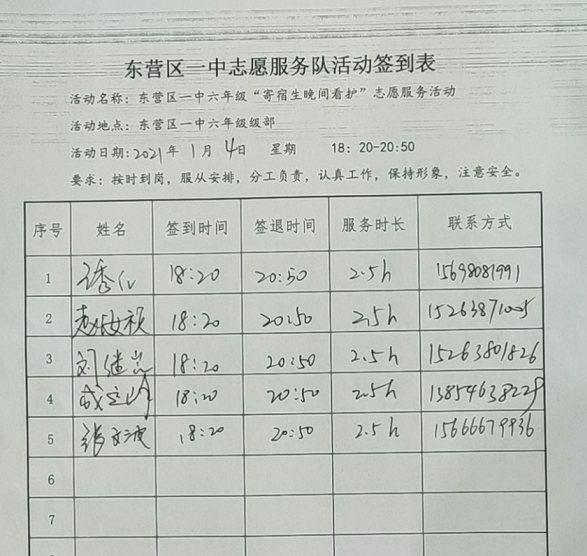 东营区一中志愿服务队活动签到表
活动名称：东营区一中六年级“寄宿生晚间看护”志愿服务活动
活动地点：东营区一中六年级级部
活动日期：2021年 1月 4日 星期 18：20-20:50
要求：按时到岗，服从安排，分工负责，认真工作，保持形象，注意安全。
序号 姓名 签到时间 签退时间 服务时长 联系方式
1 18:20 20:50 2.5h 15698081991
2 赵 18:20 20:50 2.5h 15263871005
3 刘 18:20 20:50 2.5h 15263801826
4 18:20 20:50 2.5h 13854638229
5 张 18:20 20:50 2.5h 15666679936
6
7